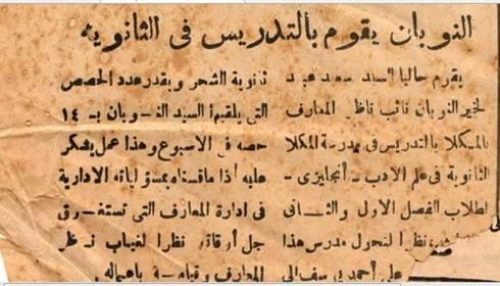 النوبان يقوم بالتدريس في الثانوية
يقوم حاليا السيد سعيد عبد
الخير النوبان نائب ناظر المعارف
بالمكلا بالتدريس في مدرسة المكلا
الثانوية في علم الادب - انجليزي -
لطلاب الفصل الاول والثاني
نظرا لتحول مدرس هذا
علي أحمد بن سف الى
ثانوية الشحر ويقدر عدد الحصص
التي يلقيها السيد النوبان بـ ١٤
حصه في الاسبوع وهذا عمل يشكر
عليه أذا ماقسناه بمسؤلياته الادارية
في ادارة المعارف التي تستغرق
جل أوقاته نظرا لغياب ناظر
المعارف وقيامه باعماله.